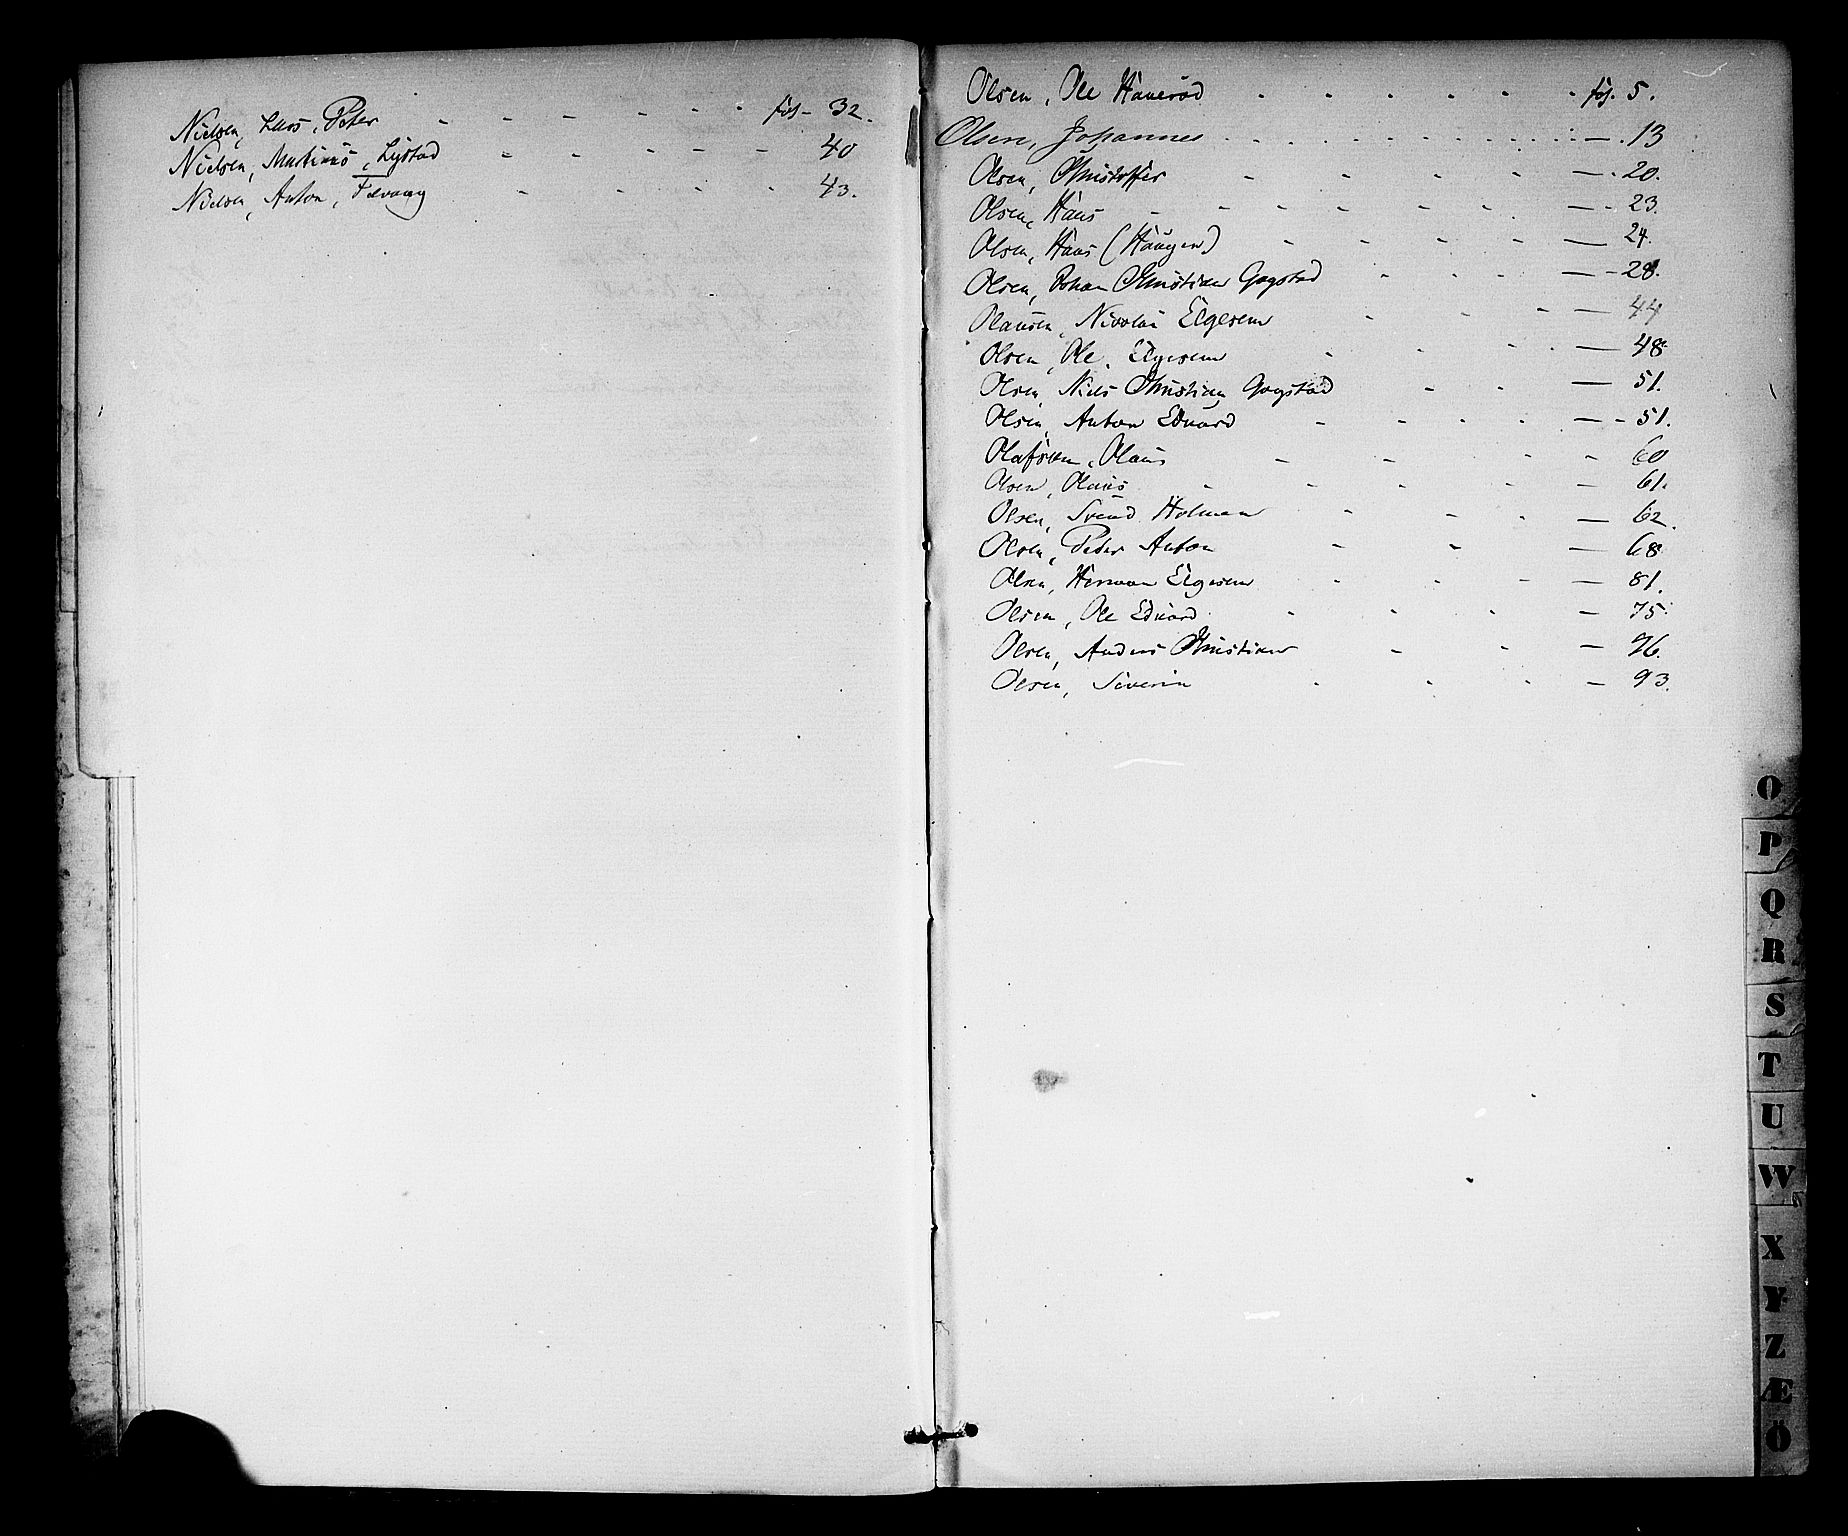 Nielsen, Lars, Peter - - - - - - fol - 32.
Nielsen, Martinus, Lystad - - - - - 40
Nielsen, Anton, Fevang - - - - 43.
Olsen, Ole Haverød - - - - - - fol. 5.
Olsen, Johannes . . . . . . . . . . . — . 13
Olsen, Christoffer - - - - - — - 20.
Olsen, Hans - - - - - - - — - 23.
Olsen, Hans (Haugen) - - - - — 24.
Olsen, Johan Christian Gogstad - - - — - 28.
Olausen, Nicolai Elgesem - - - — 44
Olsen, Ole, Elgesem - - - - — 48
Olsen, Niels Christian Gogstad - - — 51.
Olsen, Anton Edvard - - - - — - 51.
Olafsen, Olaus - - - - 60
Olsen, Olaus - - - - — 61.
Olsen, Svend Holman - - - — 62.
Olsen, Peter Anton - - — 68
Olsen, Herman Elgesem - - - — 81.
Olsen, Ole Edvard - - - — 75.
Olsen, Anders Christian - - — 76.
Olsen, Severin - - - — 93.
O
P
Q
R
S
T
U
W
X
Y
Z
Æ
Ö